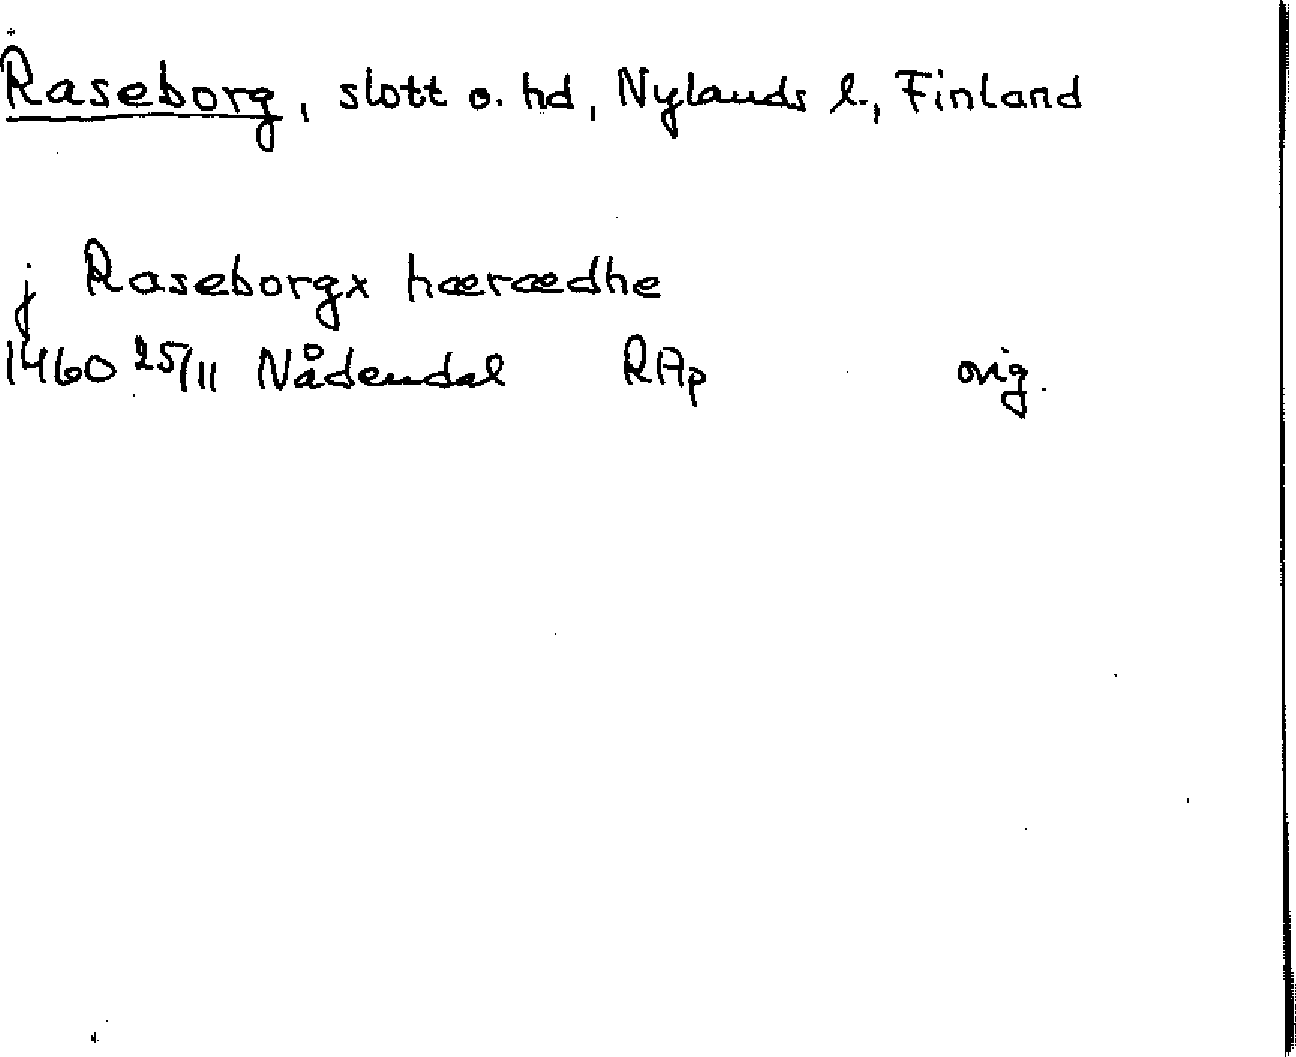 Raseborg, slott o. hd, Nylands l., Finland
j Raseborgx hærædhe
1460 25/11 Nådendal RAp orig.